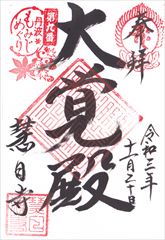 奉拝
令和三年
十一月二十日
大覚殿
第九番
丹波
もみじ
めぐり
慧日寺